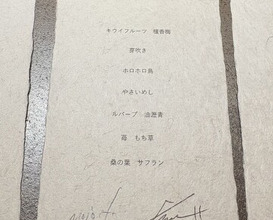 キウイフルーツ　穂香館
芽吹き
ホロホロ鳥
やさいめし
ルバーブ　油瀝青
苺　もち草
桑の葉　サフラン